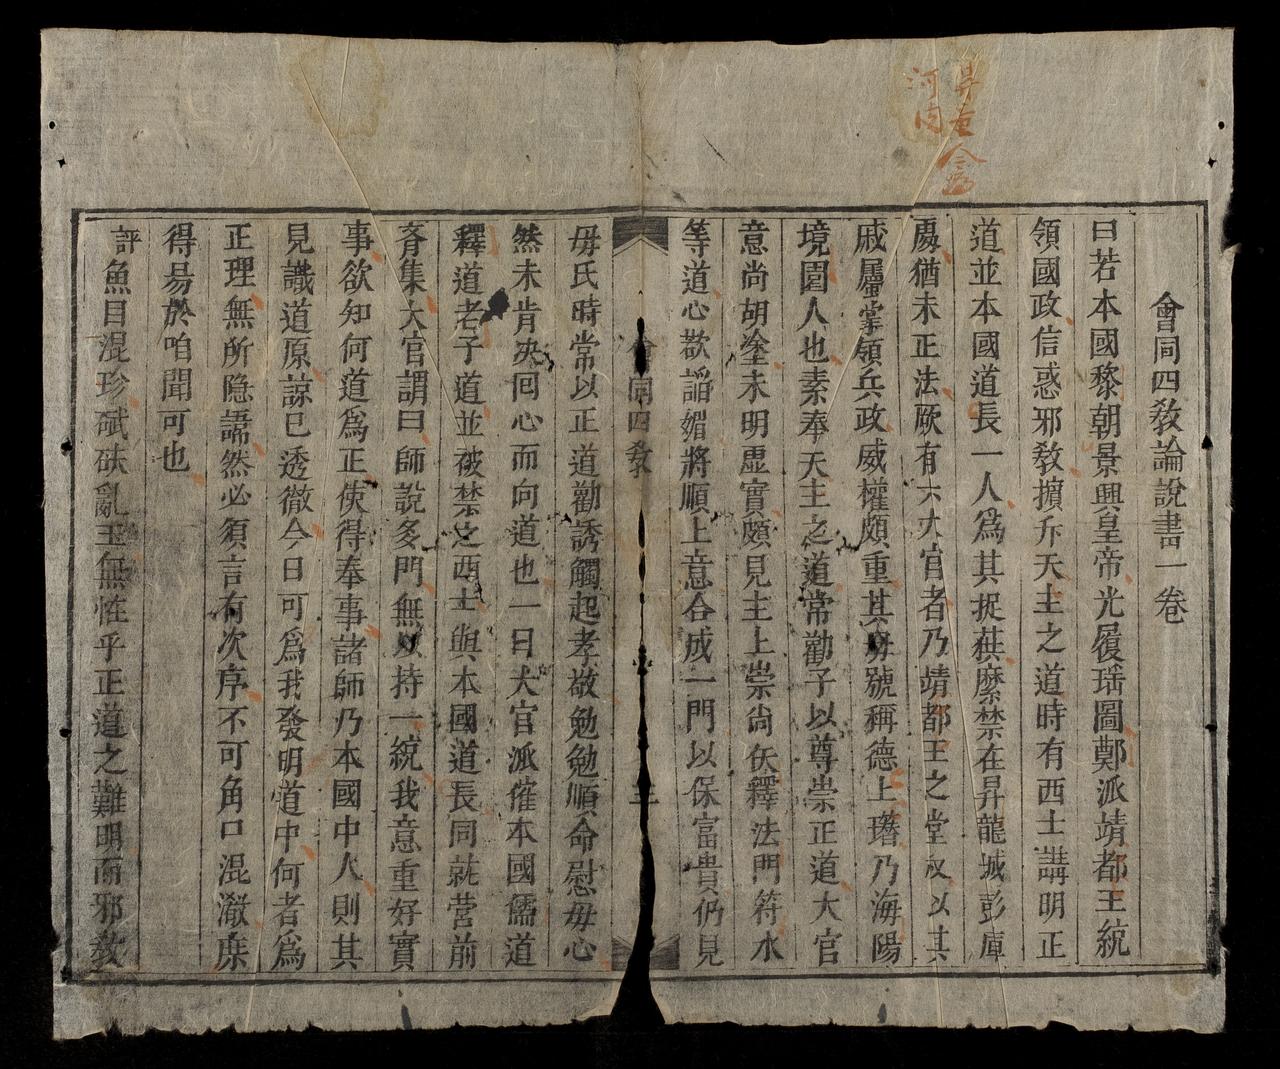 會同四教論說書一卷
曰若本國黎朝景興皇帝光履瑶圖鄭派靖都王統
領國政信惑邪教擯斥天主之道時有西士講明正
道並本國道長一人爲其捉棋縻禁在昇龍城彭庫
處猶未正法厥有六大官者乃靖都王之堂叔以其
戚屬掌領兵政威權頗重其毋號稱德上瑨乃海陽
境圍人也素奉天主之道常勸子以尊崇正道大官
意尚胡塗未明虛實頗見主上崇尚仸釋法門符水
等道心欲謟媚將順上意合成一門以保富貴仍見
會同四教
毋氏時常以正道勸誘觸起孝敬勉勉順命慰毋心
然未肯决回心而向道也一日大官派催本國儒道
釋道老子道並被禁之西士與本國道長同就營前
齊集大官謂曰師說多門無以持一統我意重好實
事欲知何道爲正使得奉事諸師乃本國中人則其
見識道原諒已透徹今日可爲我發明道中何者爲
正理無所隐謡然必須言有次序不可角口混澂庶
得昜於咱聞可也
評魚目混珍碔砆亂玉無怪乎正道之難明而邪教
河内